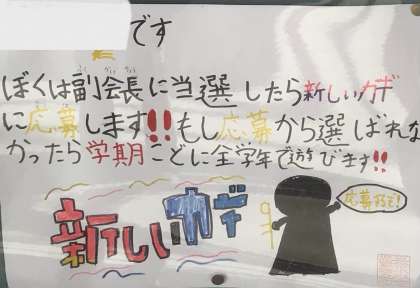 です
ぼくは副会長に当選したら新しいカギ
に応募します!!もし応募から選ばれな
かったら学期ごとに全学年で遊びます!!
新しいカギ
応募するぞ!